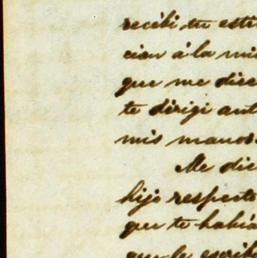 recibi tu esti
cion á la mia
que me dice
te dirigi ant
mis manos.
Me dic
hijo respecto
que te habia
que le escrib